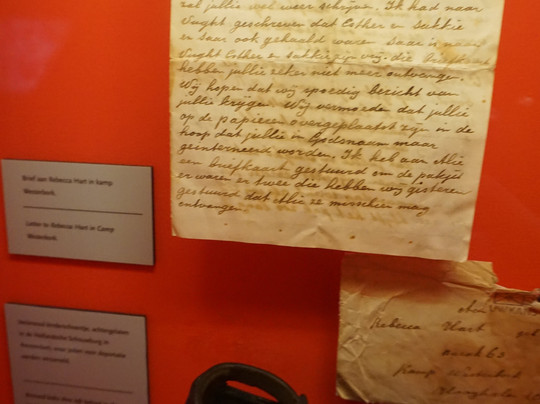 zal jullie wel weer schrijven. Ik had naar
Vught geschreven dat Esther en Sakkie
er Saar ook gehaald waren Saar is naar
Vught Esther en Sakkie zijn vrij. die briefkaart
hebben jullie zeker niet meer ontvangen.
Wij hopen dat wij spoedig bericht van
jullie krijgen. Wij vermoeden dat jullie
op de papieren overgeplaatst zijn in de
hoop dat jullie in Godsnaam maar
geinterneerd worden. Ik heb aan Alie
een briefkaart gestuurd om de pakjes
er waren er twee die hebben wij gisteren
gestuurd dat Alie ze misschien mag
ontvangen.
Brief aan Rebecca Hart in kamp
Westerbork.
Letter to Rebecca Hart in Camp
Westerbork.
Rebecca Hart
barak 63
Kamp Westerbork
Hooghalen
Versleten kinderschoentje, achtergelaten
in de Hollandsche Schouwburg in